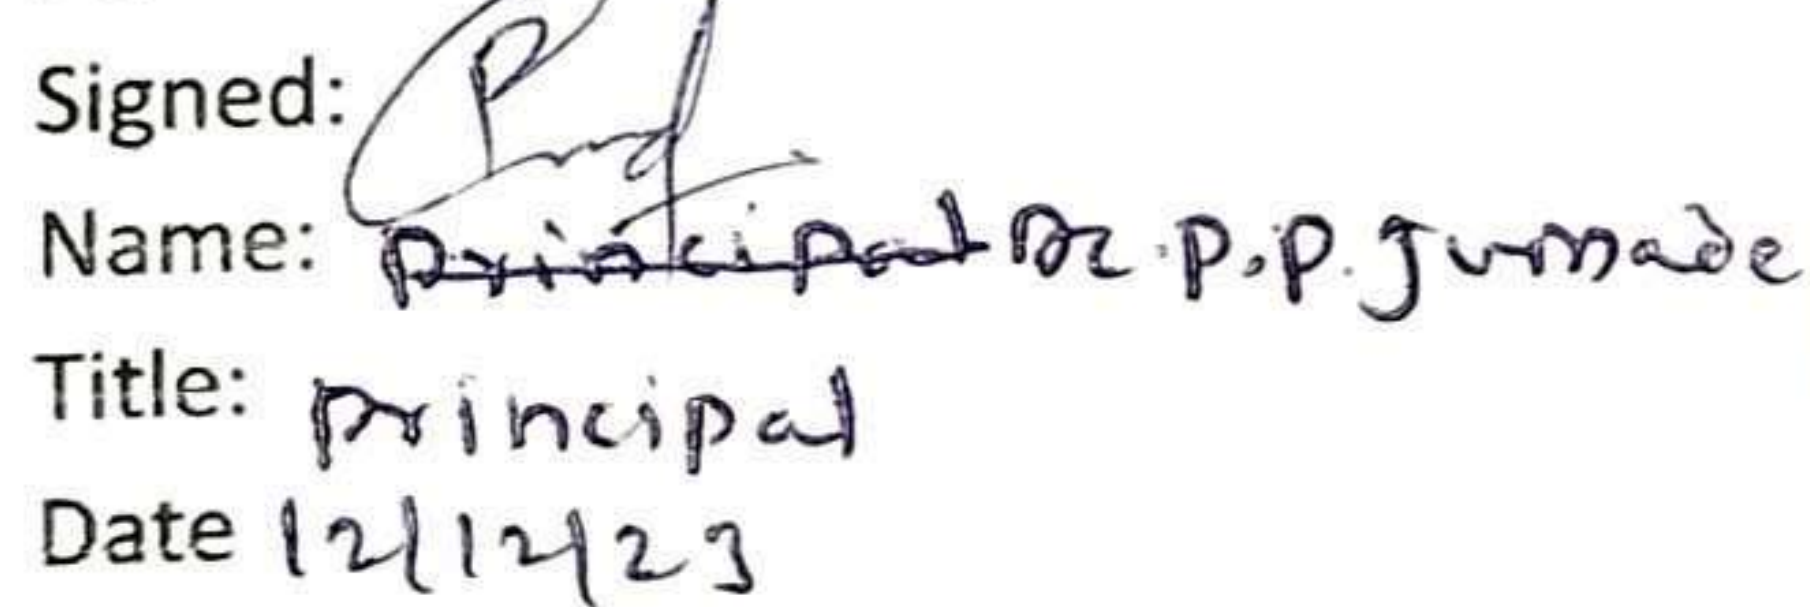 Signed:
Name: principal Dr. P.P. Jumade
Title: principal
Date 12/12/23